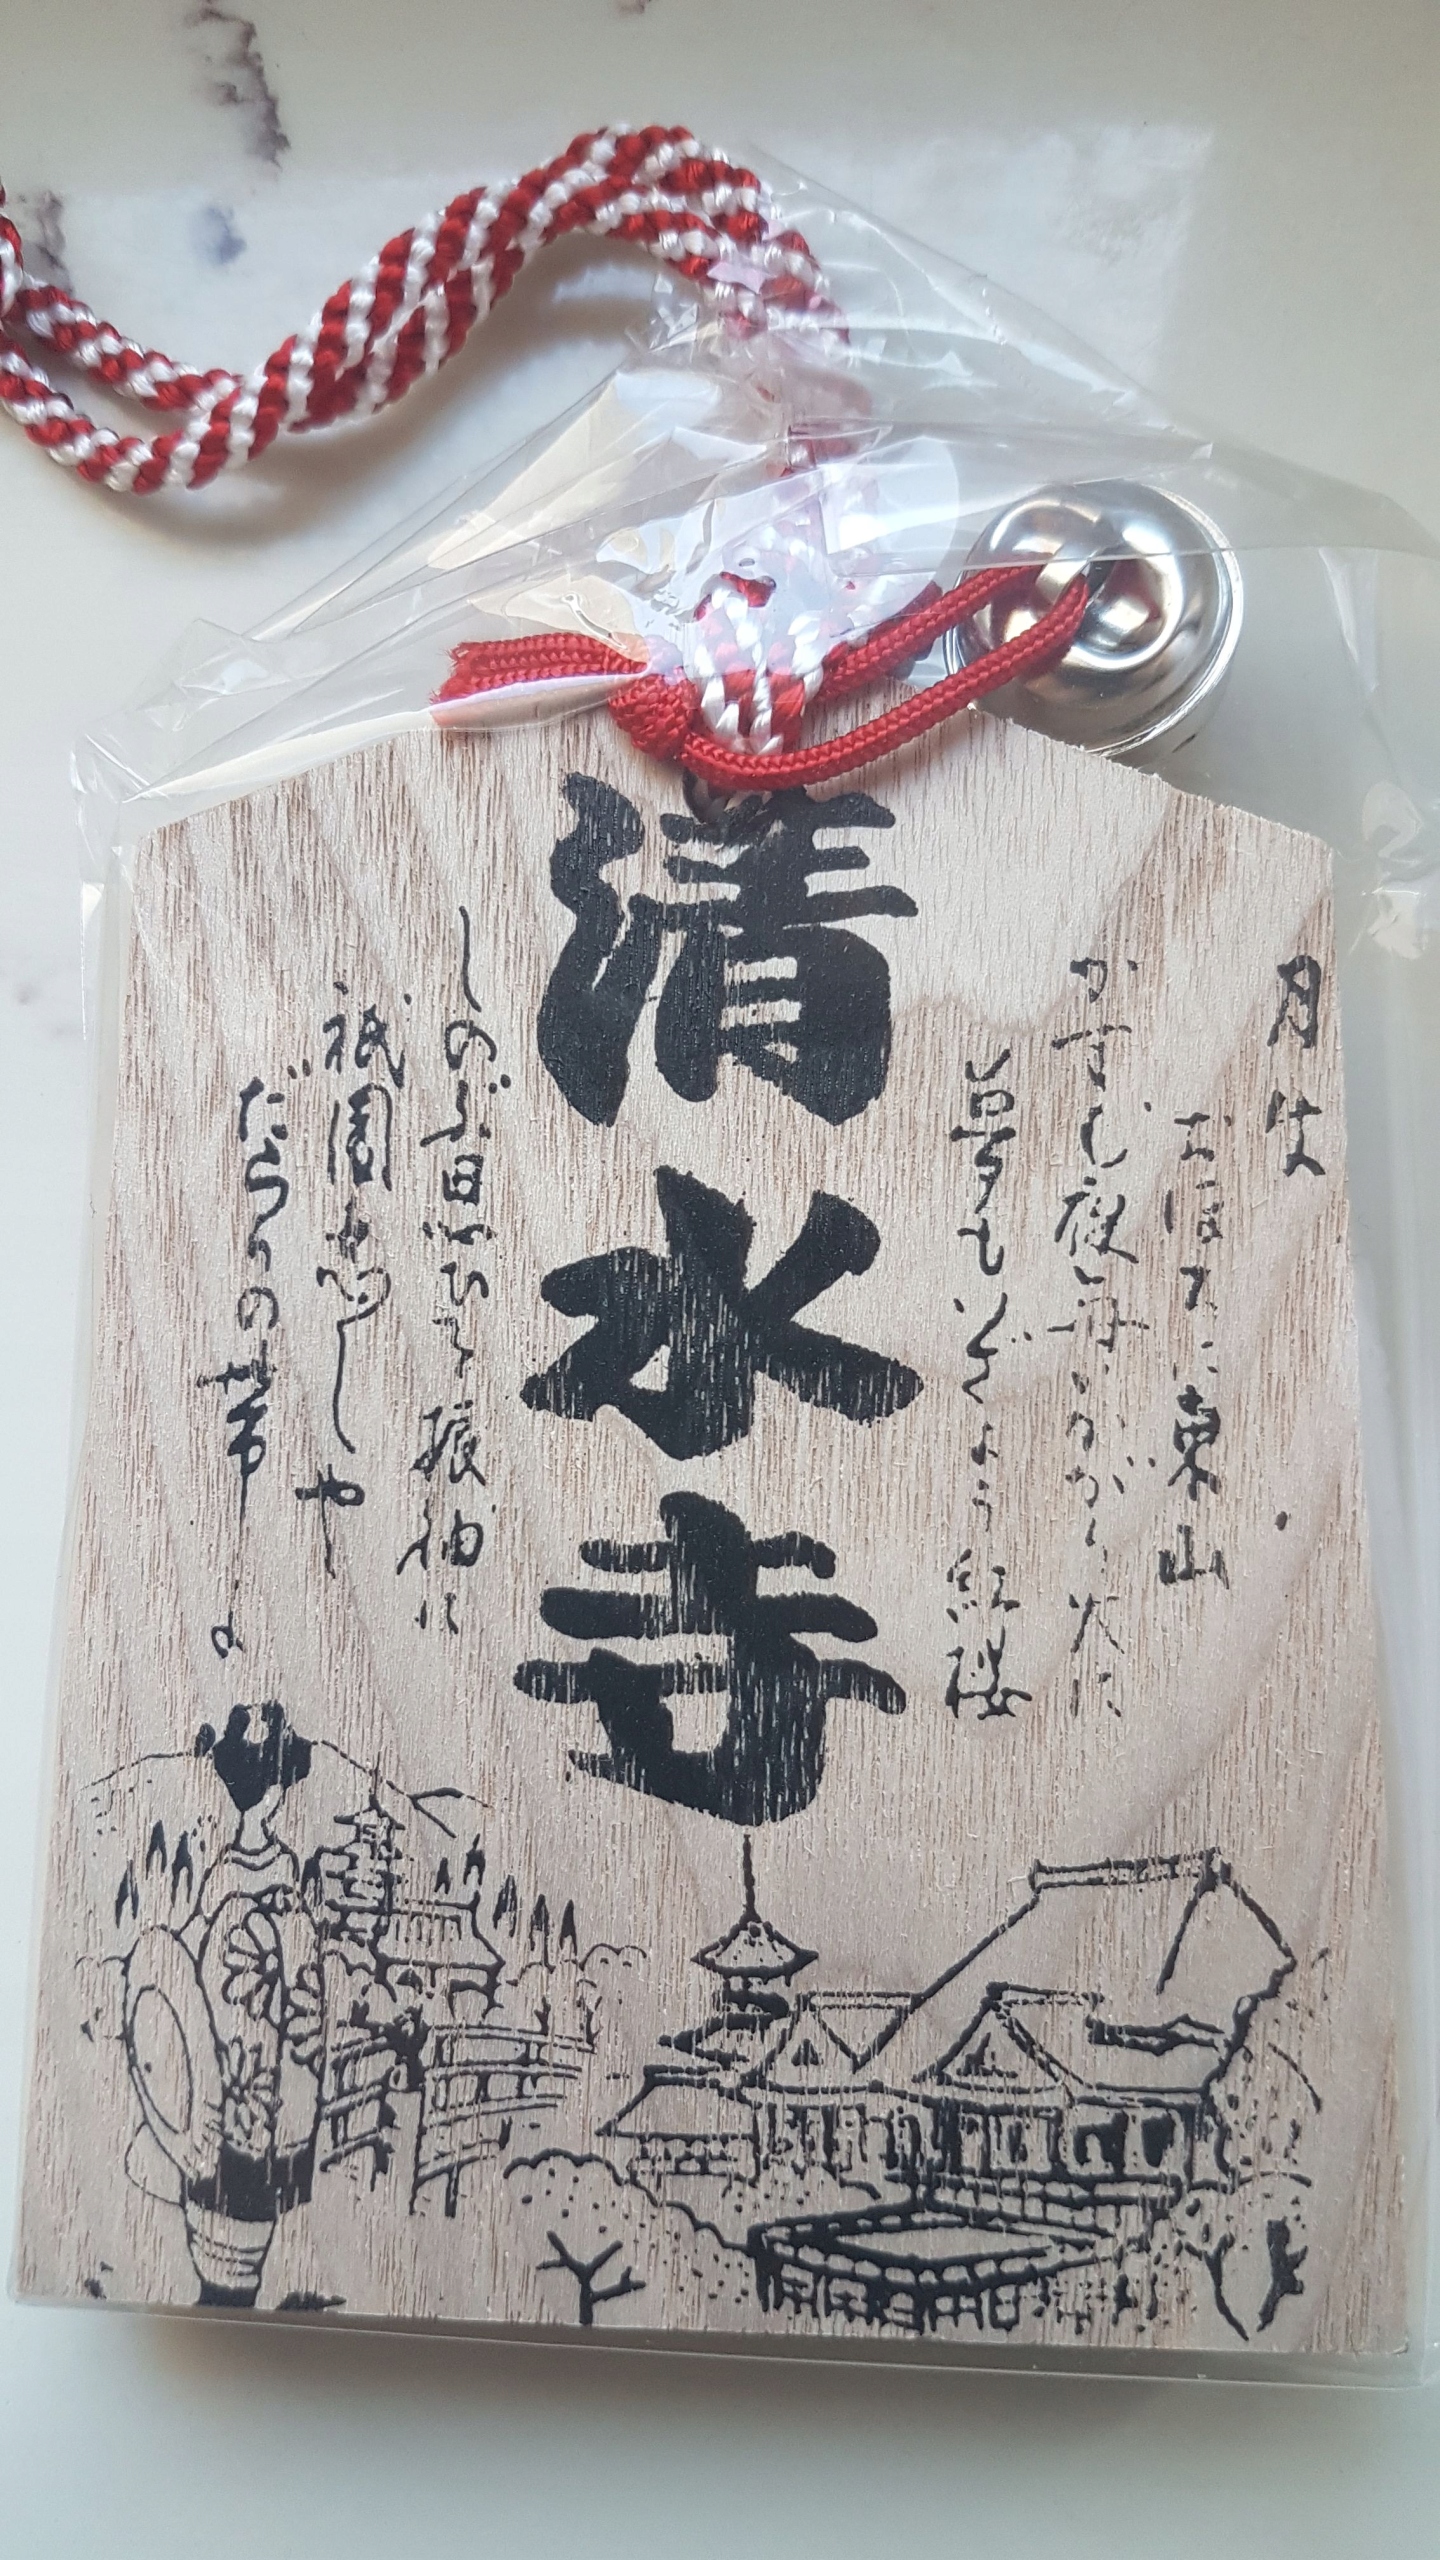 月は
おぼろに東山
かすむ夜毎のかがり火に
夢もいざよう紅桜
清水寺
しのぶ思ひを振袖に
祇園恋しや
だらりの帯よ